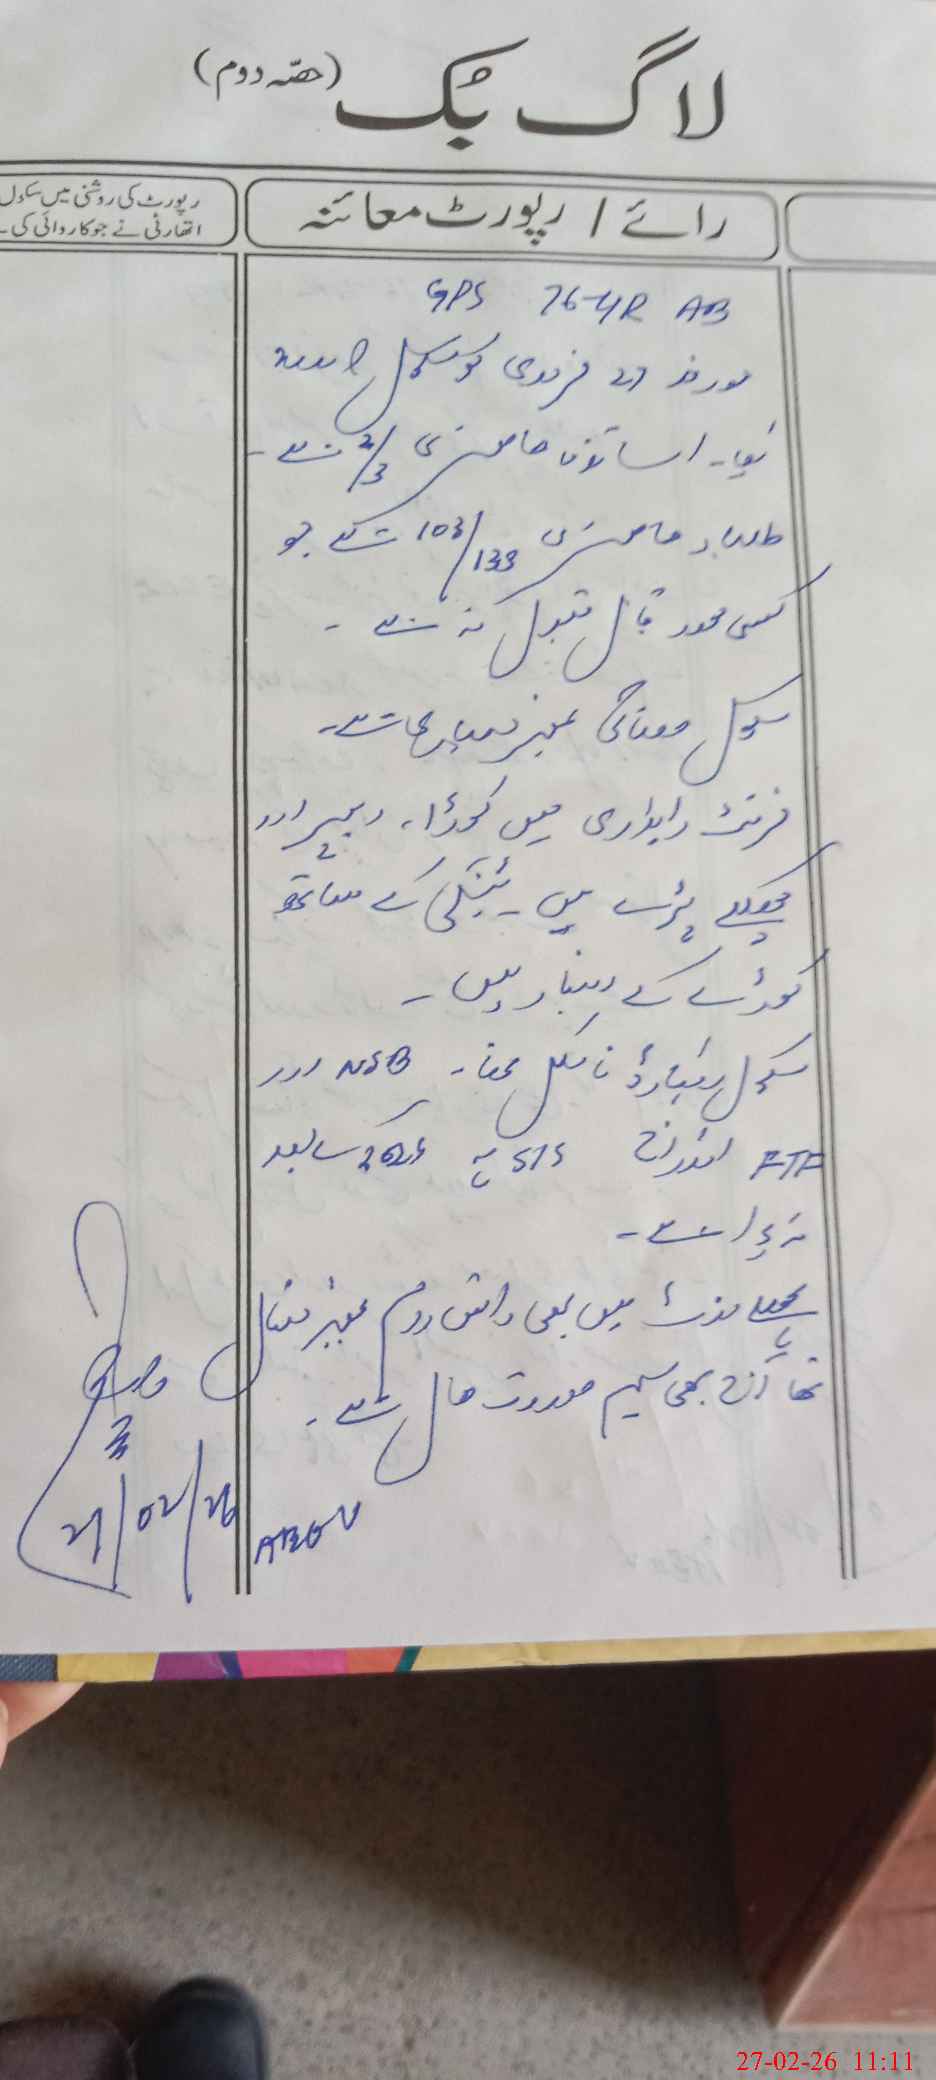 لاگ بک (حصّہ دوم)
رائے / رپورٹ معائنہ
رپورٹ کی روشنی میں سکول
اتھارٹی نے جو کاروائی کی۔
GPS 76-4R AB
مورخہ 27 فروری کو سکول
کیا۔ اساتذہ حاضری 2/3 ہے۔
طلباء حاضری 103/133 ہے جو
کسی طور قابل قبول نہ ہے۔
سکول صفائی غیر معیاری ہے۔
فرنٹ راہداری میں کوڑا، ریپر اور
چھلکے پڑے ہیں۔ ٹینکی کے ساتھ
کوڑے کے انبار ہیں۔
سکول ریکارڈ نامکمل تھا۔ NSB اور
FTF اندراج SIS پہ 2025 سے بعد
نہ ہوا ہے۔
پچھلے وزٹ میں بھی واش روم غیر فعال
تھا آج بھی سیم صورت حال ہے۔
27/02/26
27-02-26 11:11